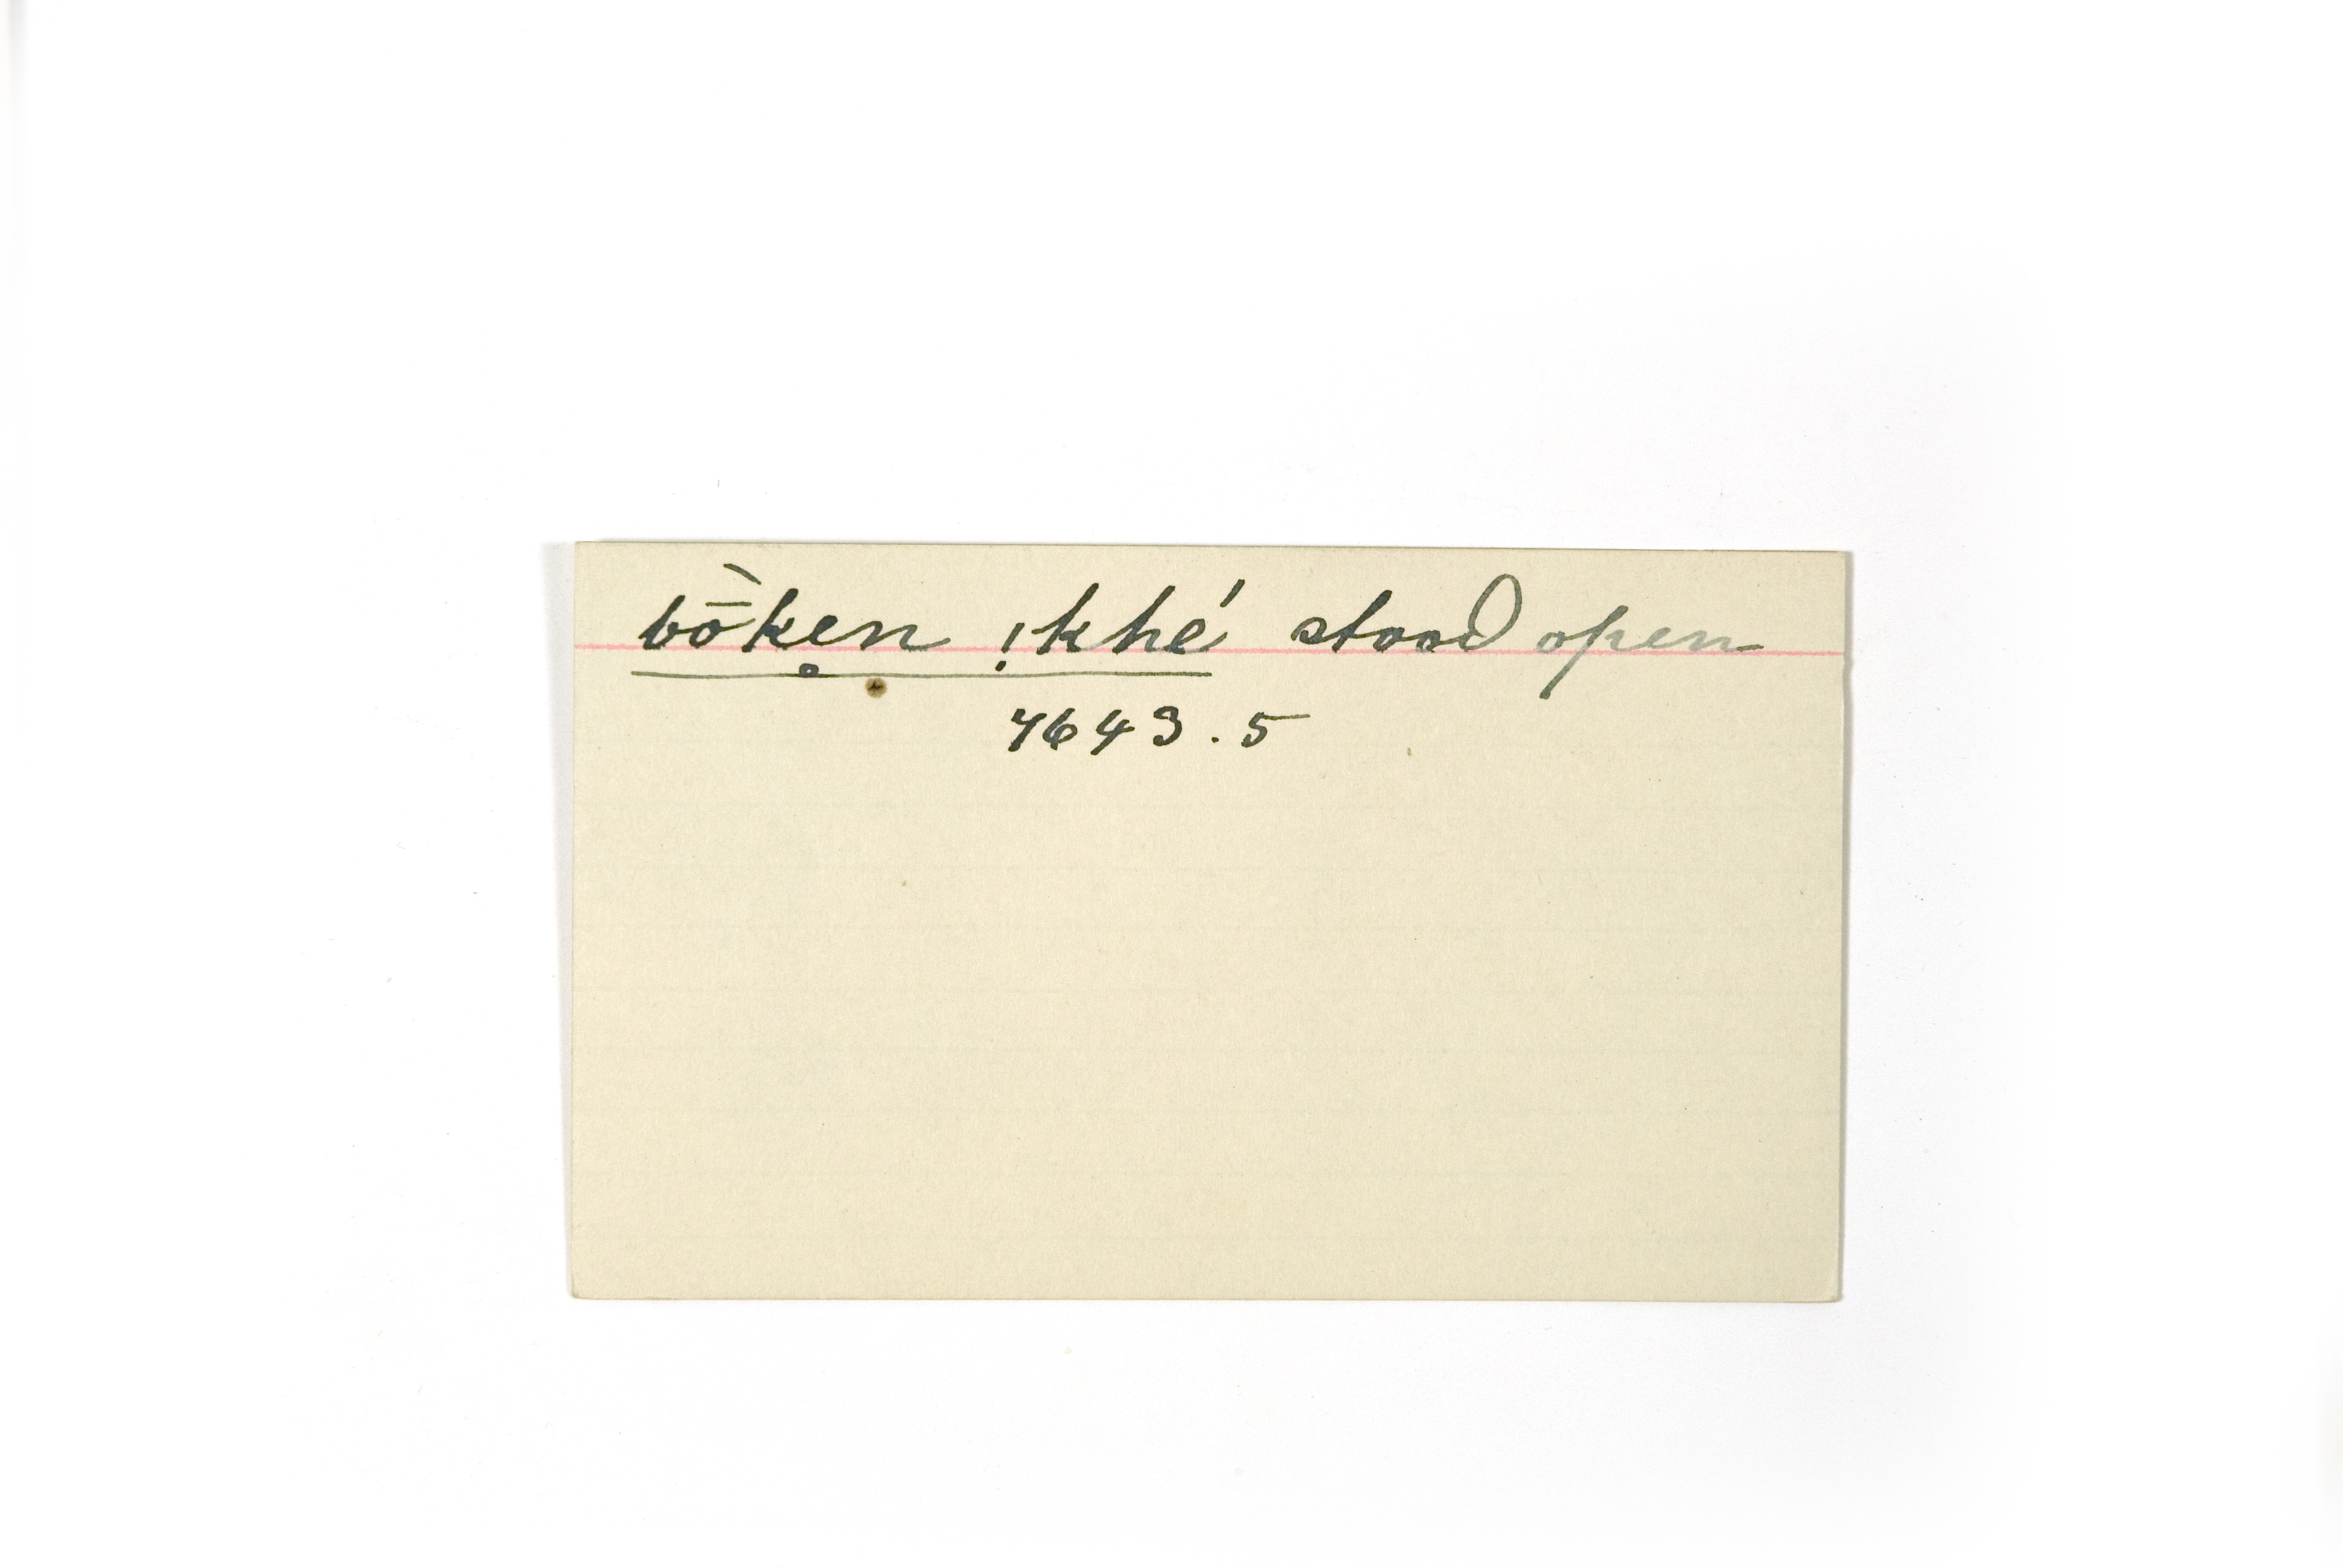 bṑke̥n !khé stood open
7643.5